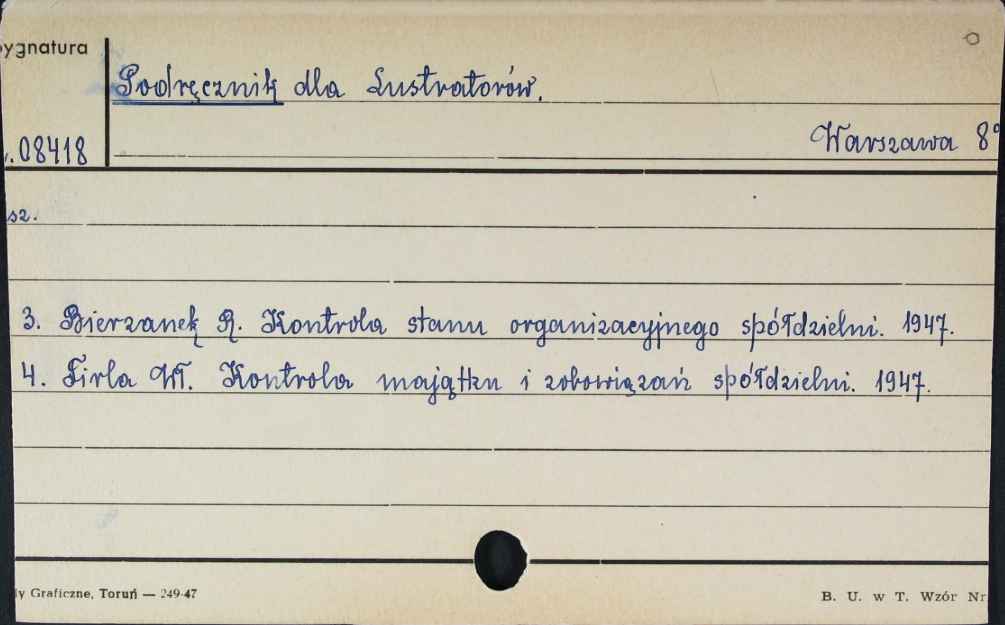 ygnatura
Podręcznik dla Lustratorów.
Warszawa 8°
.08418
sz.
3. Bierzanek R. Kontrola stanu organizacyjnego spółdzielni. 1947.
4. Firla Wł. Kontrola majątku i zobowiązań spółdzielni. 1947.
y Graficzne, Toruń — 249-47
B. U. w T. Wzór Nr